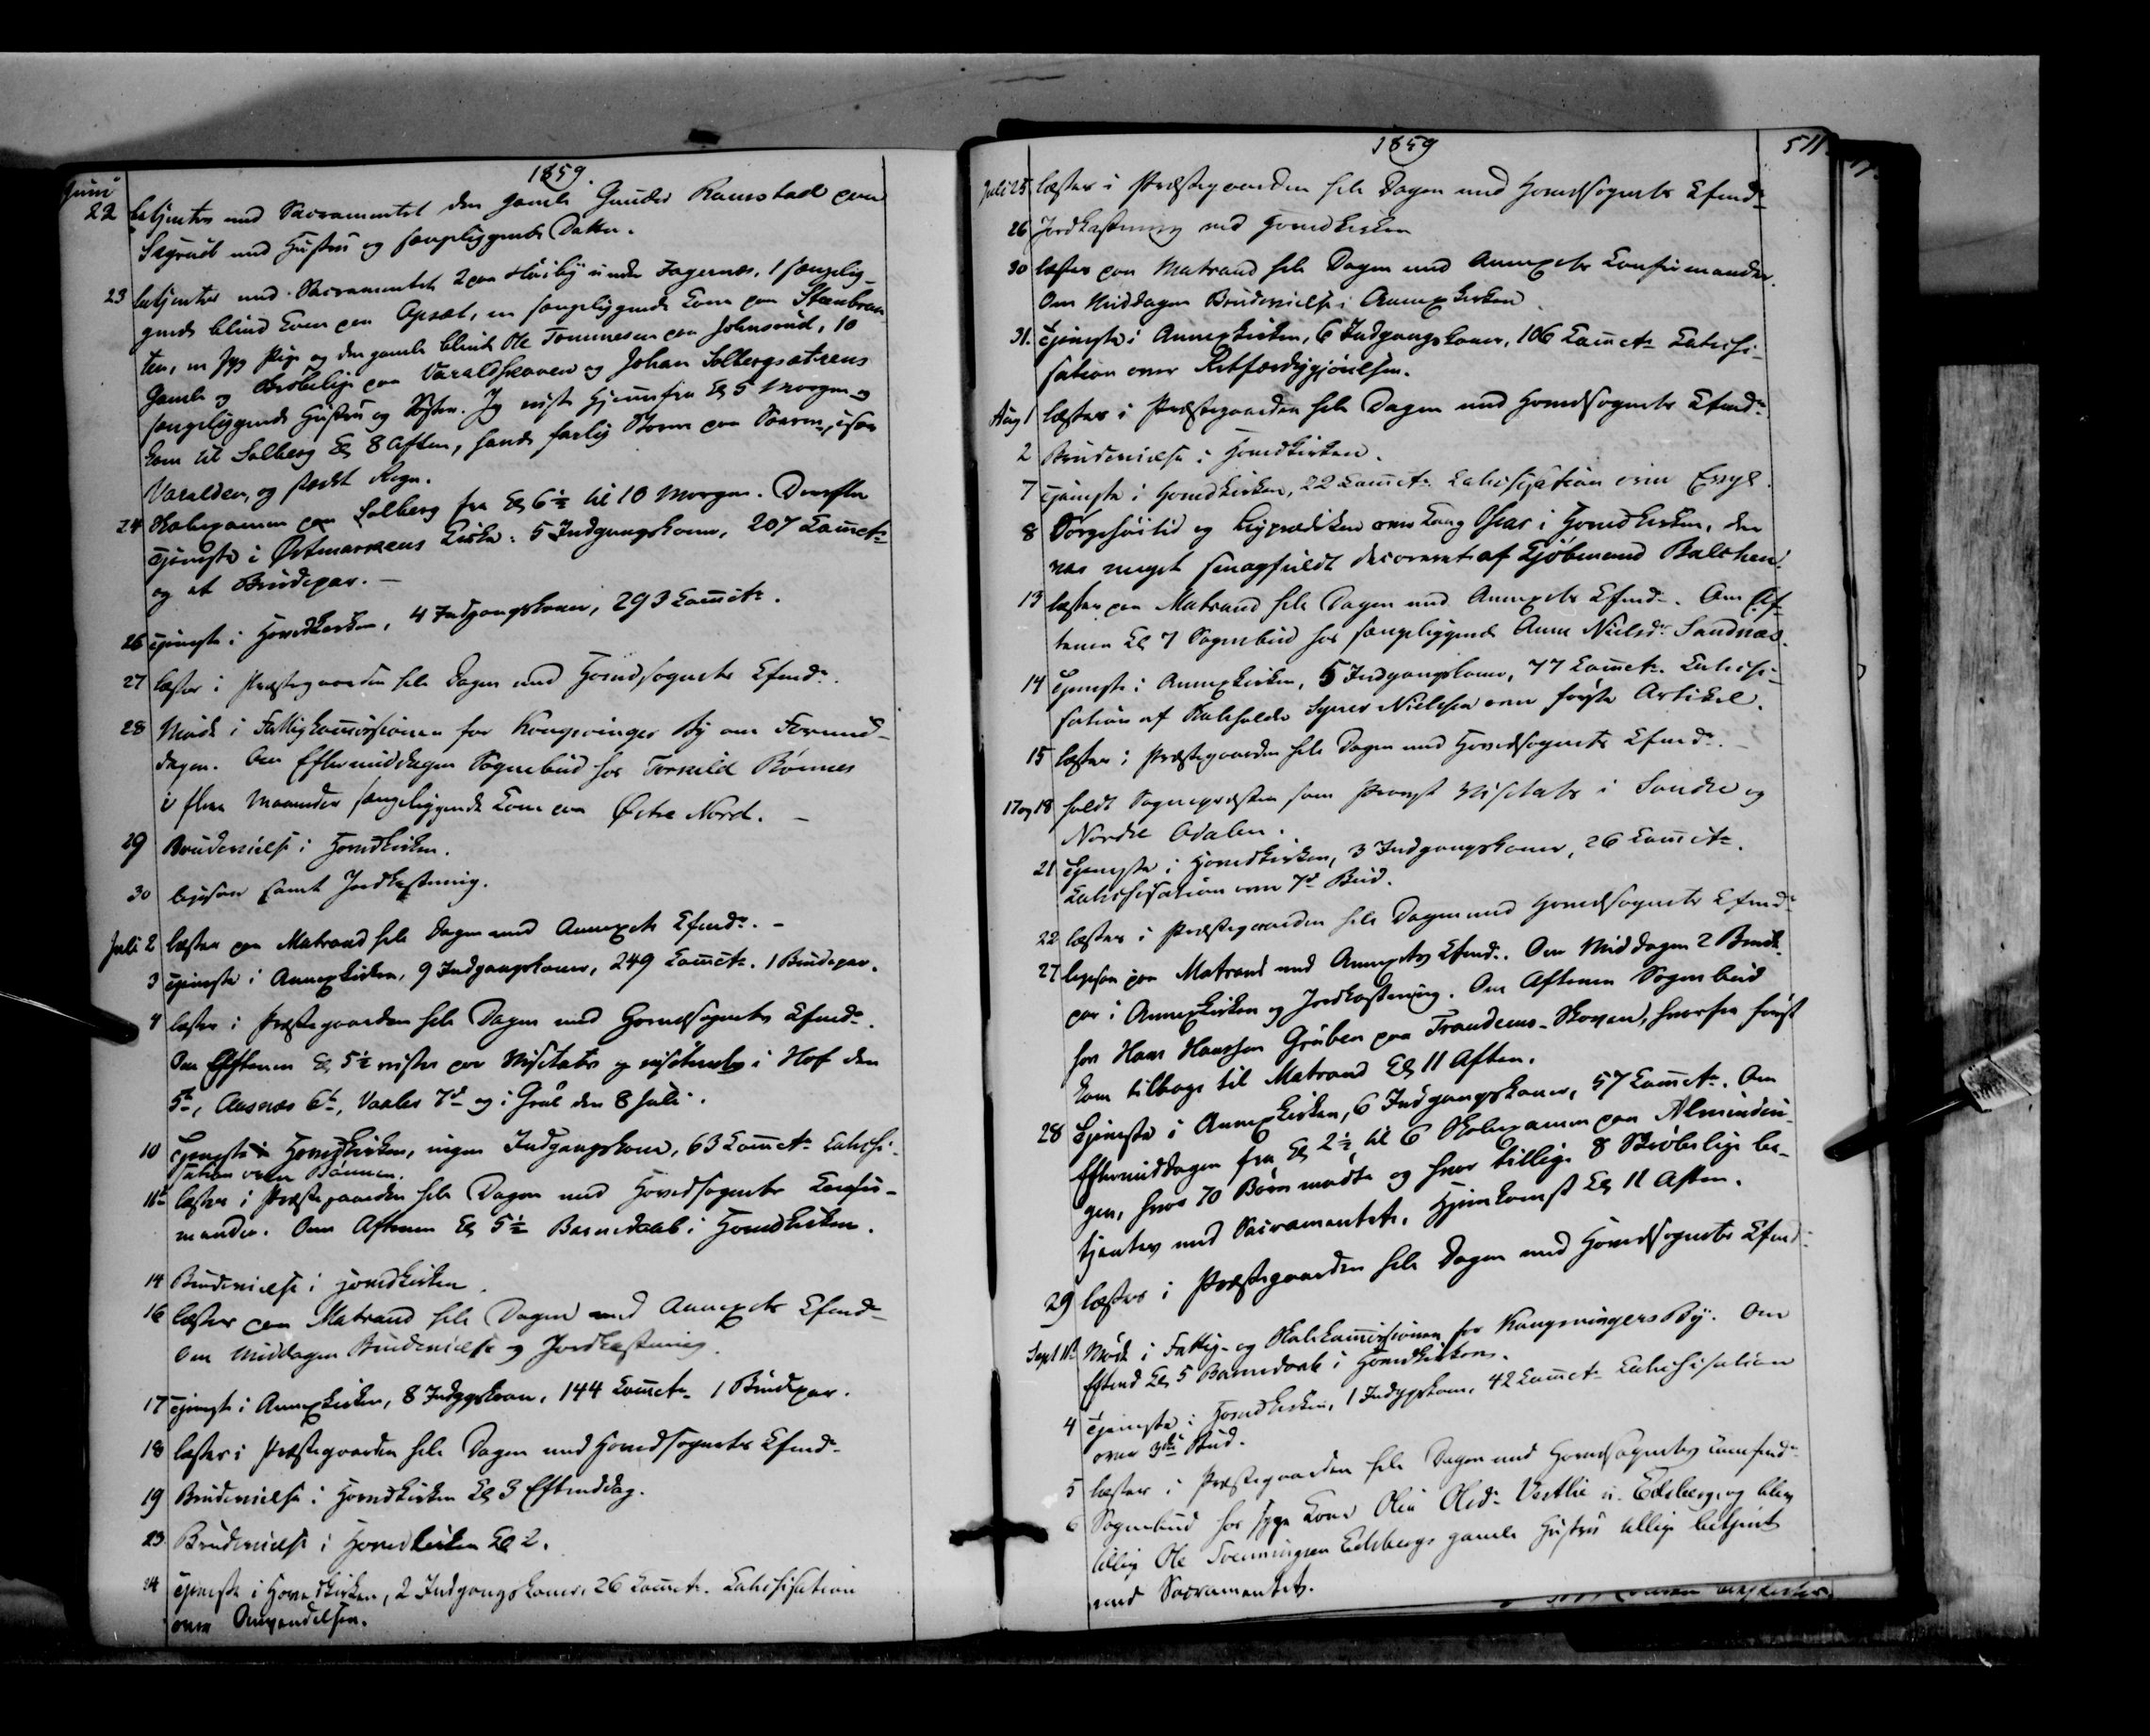 1859.
Juni
22 betjentes med Sacramentet den gamle Gunder Ramstad paa
Skyrud med Hustru og sengeliggende Datter.
23 betjentes med Sacramentet 2 paa Høiby under Fagernæs, 1 sengelig-
gende blind Kone paa Opsæt, en sengeliggende Kone paa
en syg Pige og den gamle blinde Ole Tommesen paa Johnsrud, 10
Gamle og Skrøbelige paa Varaldskoven og Johan Solbergsætrens
sengeliggende Hustru og Søster. Jeg reiste hjemmefra Kl 5 Morgen og
kom til Solberg Kl 8 Aften, havde farlig Storm paa
Varalden, og stærk Regn.
24 Skoleexamen paa Solberg fra Kl 6½ til 10 Morgen. Derefter
Tjeneste i Østmarkens Kirke. 5 Indgangskoner, 207 Commcter
og et Brudepar. —
26 Tjeneste i Hovedkirken, 4 Indgangskoner, 293 Commcter.
27 læstes i Præstegaarden hele Dagen med Hovedsognets Cfmdr.
28 Møde i Fattigkommissionen for Kongsvinger By om Formid-
dagen. Om Eftermiddagen Sognebud hos Torkild Rønnes
i flere Maaneder sengeliggende Kone paa Østre Nord. —
29 Brudevielse i Hovedkirken.
30 ligesaa samt Jordkastning.
Juli 2 læstes paa Matrand hele Dagen med Annexets Cfmdr. —
3 Tjeneste i Annexkirken, 9 Indgangskoner, 249 Commcter. 1 Brudepar.
4 læstes i Præstegaarden hele Dagen med Hovedsognets Cfmdr.
Om Aftenen Kl 5½ reistes paa Visitats og visiteredes i Hof den
5te, Aasnæs 6te, Vaaler 7de og i Grue den 8 Juli.
10 Tjeneste i Hovedkirken, ingen Indgangskone, 63 Commcter Catechi-
sation over Bønnen.
11te læstes i Præstegaarden hele Dagen med Hovedsognets Confir-
mander. Om Aftenen Kl 5½ Barnedaab i Hovedkirken.
14 Brudevielse i Hovedkirken.
16 læstes paa Matrand hele Dagen med Annexets Cfmdr
Om Middagen Brudevielse og Jordkastning.
17 Tjeneste i Annexkirken, 8 Indggskoner, 144 Commcter 1 Brudepar.
18 læstes i Præstegaarden hele Dagen med Hovedsognets Cfmdr
19 Brudevielse i Hovedkirken Kl 3 Eftmddag.
23 Brudevielse i Hovedkirken Kl 2.
24 Tjeneste i Hovedkirken, 2 Indgangskoner, 26 Commcter. Catechisation
over Omvendelsen.
1859
511.
Juli 25 læstes i Præstegaarden hele Dagen med Hovedsognets Cfmdr
26 Jordkastning ved Hovedkirken
30 læstes paa Matrand hele Dagen med Annexets Confirmander.
Om Middagen Brudevielse i Annexkirken.
31. Tjeneste i Annexkirken, 6 Indgangskoner, 106 Commcter Catechi-
sation over Retfærdiggjørelsen.
Aug 1 læstes i Præstegaarden hele Dagen med Hovedsognets Cfmdr.
2 Brudevielse i Hovedkirken.
7 Tjeneste i Hovedkirken, 22 Commcter Catechisation over
8 Sørgehøitid og Ligprædiken over Kong Oscar i Hovedkirken, der
var meget smagfuldt decoreret af Kjøbmand Balchen.
13 læstes paa Matrand hele Dagen med Annexets Cfmdr. Om Af-
tenen Kl 7 Sognebud hos sengeliggende Anne Nielsdr Sandnæs.
14 Tjeneste i Annexkirken, 5 Indgangskoner, 77 Commcter. Catechi-
sation af Skoleholder Syver Nielsen over første Artikel.
15 læstes i Præstegaarden hele Dagen med Hovedsognets Cfmdr. —
17 og 18 holdt Sognepræsten som Provst Visitats i Søndre og
Nordre Odalen.
21 Tjeneste i Hovedkirken, 3 Indgangskoner, 26 Commcter.
Catechisation over 7de Bud.
22 læstes i Præstegaarden hele Dagen med Hovedsognets Cfmdr
27 ligesaa paa Matrand med Annexets Cfmdr. Om Middagen 2 Brude-
par i Annexkirken og Jordkastning. Om Aftenen Sognebud
hos Hans Hansen Gruben paa Trandems-Skoven, hvorfra først
kom tilbage til Matrand Kl 11 Aften.
28 Tjeneste i Annexkirken, 6 Indgangskoner, 57 Commcter. Om
Eftermiddagen fra Kl 2½ til 6 Skoleexamen paa Alminding-
gen, hvor 70 Børn mødte og hvor tillige 8 Skrøbelige be-
tjentes med Sacramentet. Hjemkomst Kl 11 Aften.
29 læstes i Præstegaarden hele Dagen med Hovedsognets Cfmdr
Sept 1ste Møde i Fattig- og Skolekommissionen for Kongsvingers By. Om
Eftmd Kl 5 Barnedaab i Hovedkirken.
4 Tjeneste i Hovedkirken, 1 Indggskone, 42 Commcter Catechisation
over 3die Bud.
5 læstes i Præstegaarden hele Dagen med Hovedsognets Confmdr
6 Sognebud hos syge Kone Oliv Olsdr Vestlie u. Edsberg, og blev
tillige Ole Svenningsen Edsbergs gamle Hustru tillige betjent
med Sacramentet.